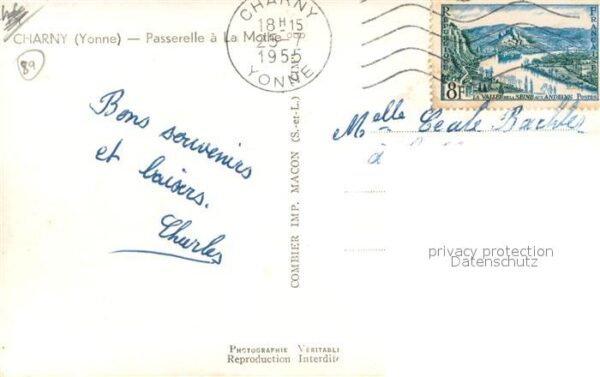 CHARNY (Yonne) — Passerelle à La Mothe
89
CHARNY
18 H 15
25-7
1955
YONNE
RÉPUBLIQUE FRANÇAISE
8F
LA VALLÉE DE LA SEINE AUX ANDELYS POSTES
Bons souvenirs
et baisers.
Charles
COMBIER IMP. MACON (S.-et-L.)
Melle
à
privacy protection
Datenschutz
PHOTOGRAPHIE VÉRITABL
Reproduction Interdite